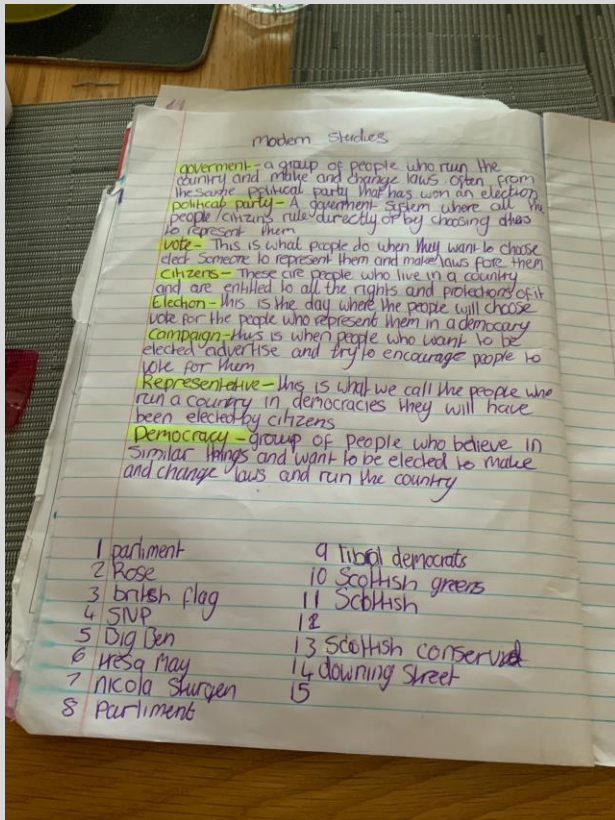 modern studies
goverment - a group of people who run the
country and make and change laws often from
the same political party that has won an election
political party - A goverment system where all the
people/citizins rule directly or by choosing
to represent them
vote - This is what people do when they want to choose
elect someone to represent them and make laws fore them
Citizens - These are people who live in a country
and are entitled to all the rights and protections of it
Election - this is the day where the people will choose
vote for the people who represent them in a democary
Campaign - this is when people who want to be
elected advertise and try to encourage people to
vote for them
Representative - this is what we call the people who
run a country in democracies they will have
been elected by citizens
Democracy - group of people who believe in
Similar things and want to be elected to make
and change laws and run the country
1 parliment
2 Rose
3 british flag
4 SNP
5 Big Ben
6 May
7 nicola sturgen
8 Parliment
9 democrats
10 Scottish greens
11 Scottish
12
13 Scottish
14 downing street
15